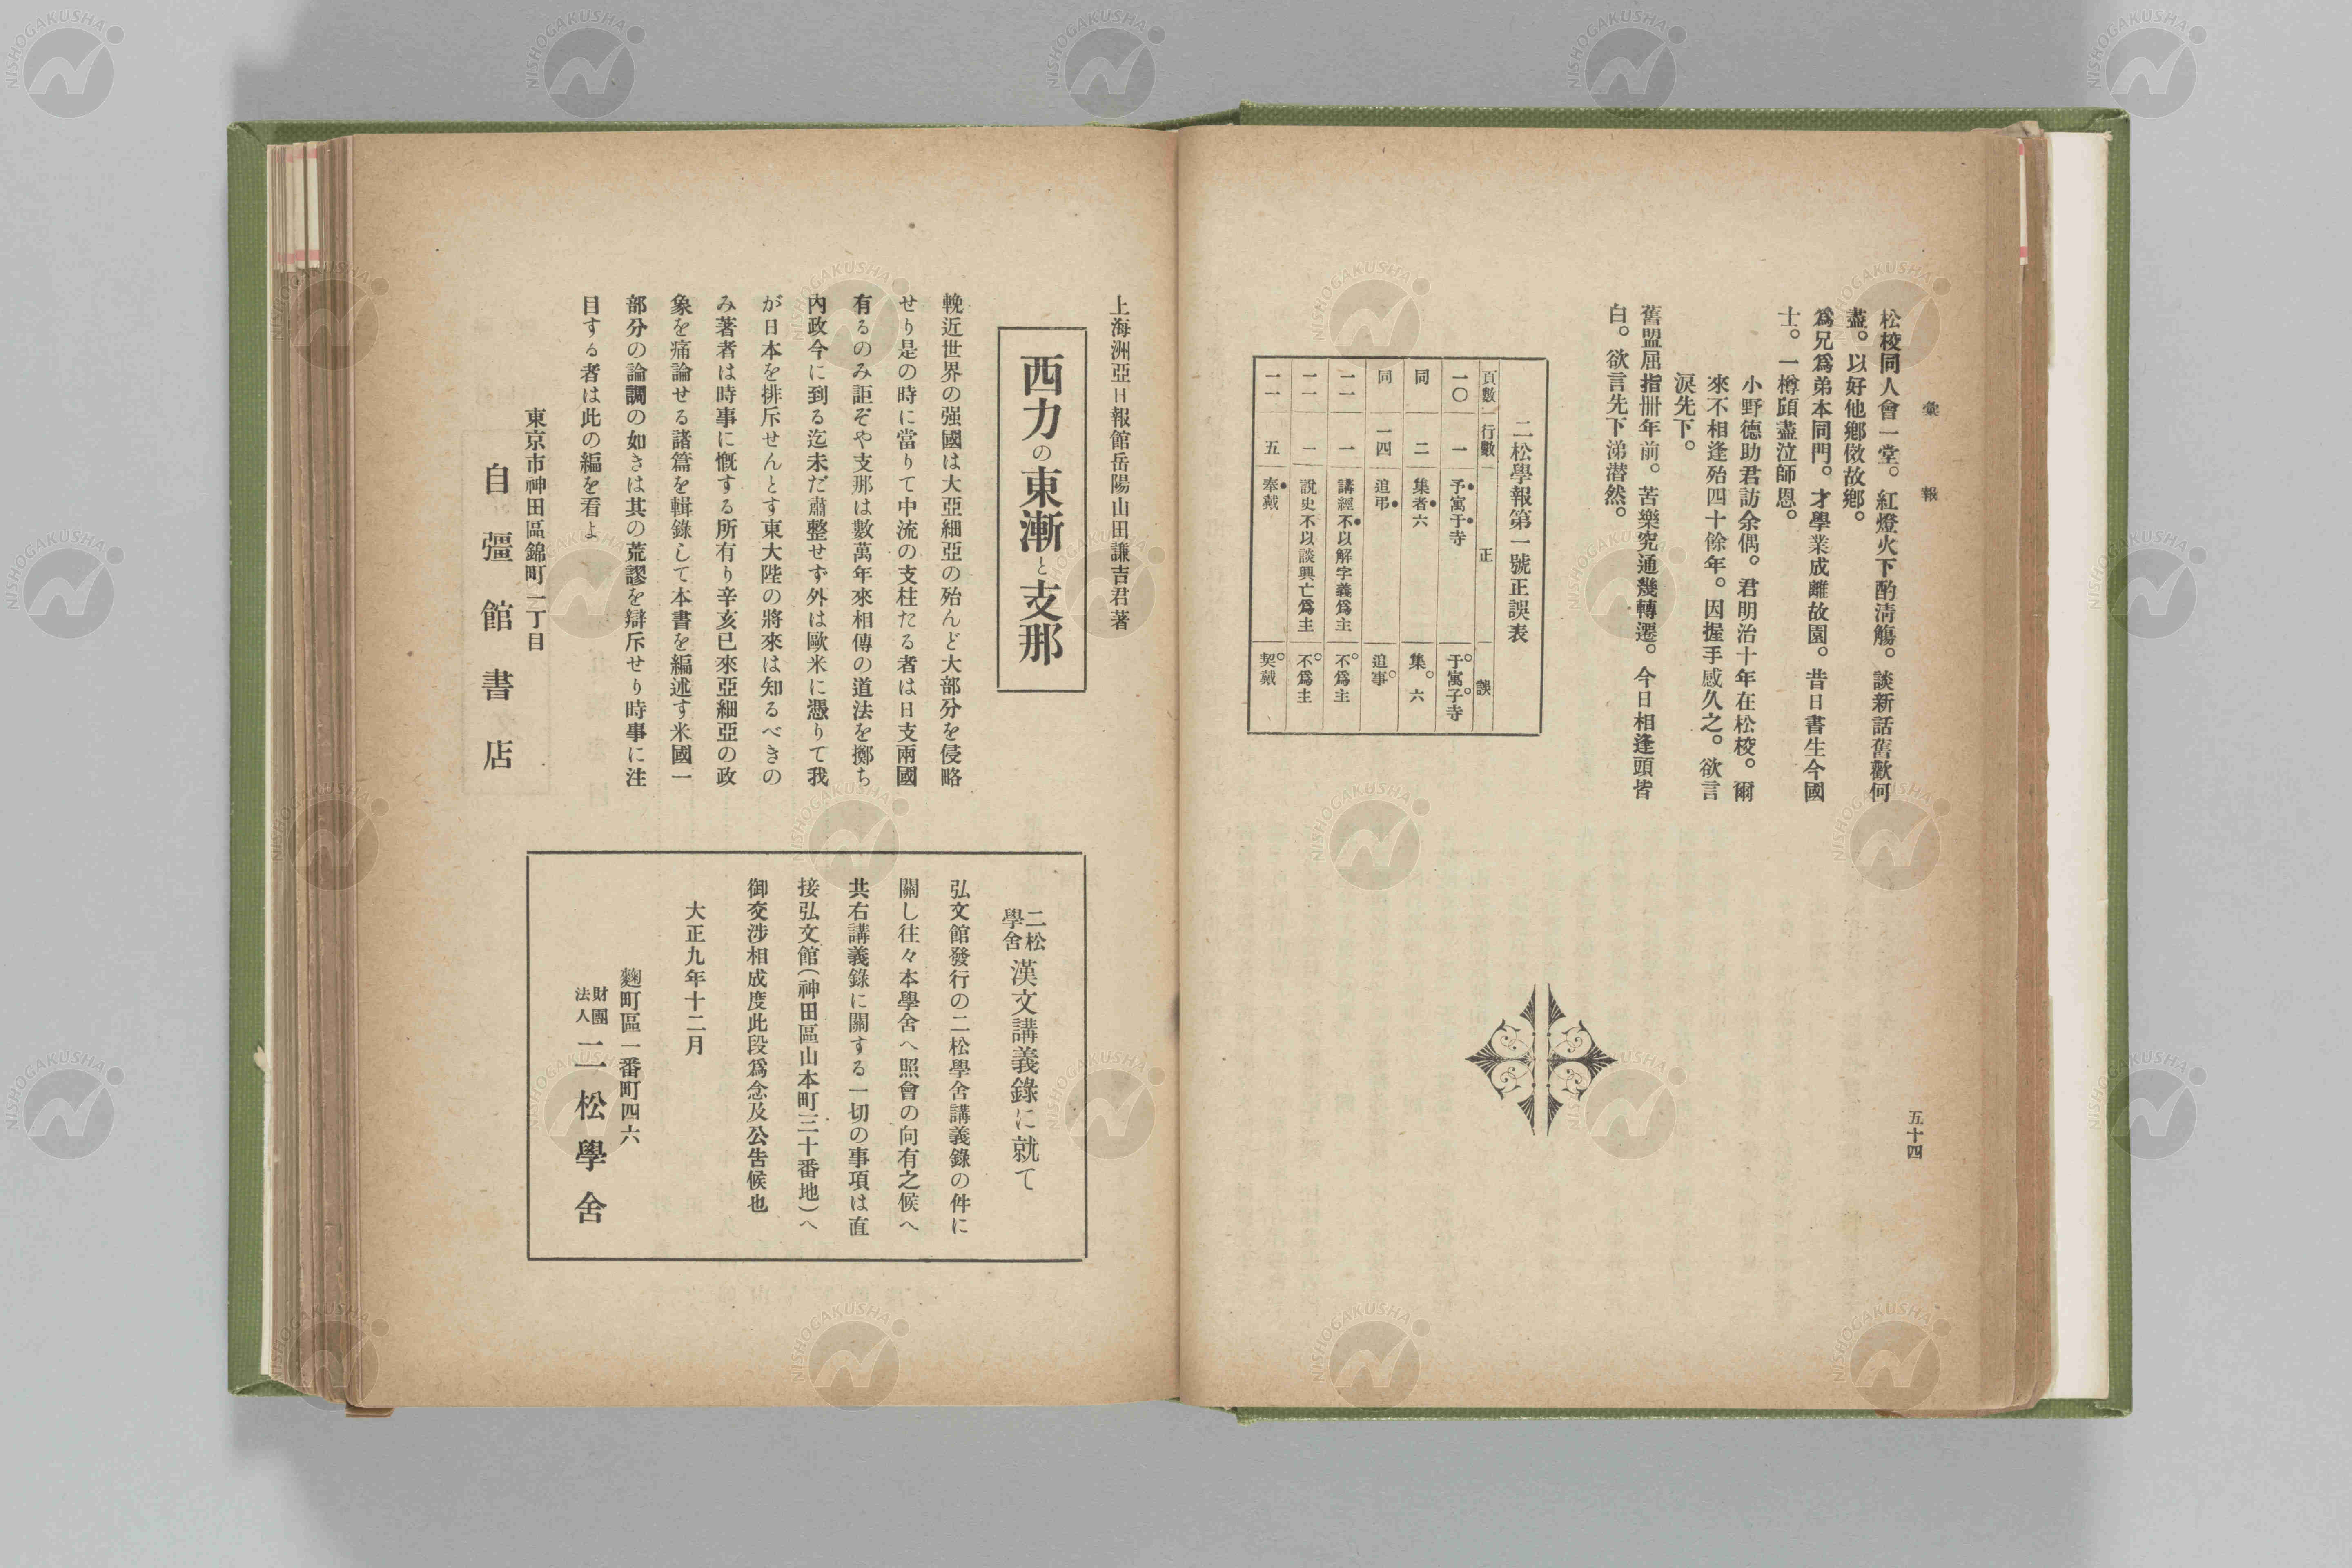 彙報
松校同人會一堂。紅燈火下酌淸觴。談新話舊歡何
盡。以好他鄕倣故鄕。
爲兄爲弟本同門。才學業成離故園。昔日書生今國
士。一樽頎盡泣師恩。
小野德助君訪余偶。君明治十年在松校。爾
來不相逢殆四十餘年。因握手感久之。欲言
淚先下。
舊盟屈指卌年前。苦樂究通幾轉遷。今日相逢頭皆
白。欲言先下涕潸然。
二松學報第一號正誤表
頁數 行數 正 誤
一〇 一 予寓于寺 于寓子寺
同 二 集者六 集。六
同 一四 追弔 追事
一一 一 講經不以解字義爲主 不爲主
一一 一 說史不以談興亡爲主 不爲主
一一 五 奉戴 契戴
五十四
上海洲亞日報館岳陽山田謙吉君著
西力の東漸と支那
輓近世界の强國は大亞細亞の殆んど大部分を侵略
せり是の時に當りて中流の支柱たる者は日支兩國
有るのみ詎ぞや支那は數萬年來相傳の道法を擲ち
內政今に到る迄未だ肅整せず外は歐米に憑りて我
が日本を排斥せんとす東大陸の將來は知るべきの
み著者は時事に慨する所有り辛亥已來亞細亞の政
象を痛論せる諸篇を輯錄して本書を編述す米國一
部分の論調の如きは其の荒謬を辯斥せり時事に注
目する者は此の編を看よ
東京市神田區錦町一丁目
自彊館書店
二松學舍漢文講義錄に就て
弘文館發行の二松學舍講義錄の件に
關し往々本學舍へ照會の向有之候へ
共右講義錄に關する一切の事項は直
接弘文館(神田區山本町三十番地)へ
御交涉相成度此段爲念及公吿候也
大正九年十二月
麴町區一番町四六
財團法人二松學舍
NISHOGAKUSHA